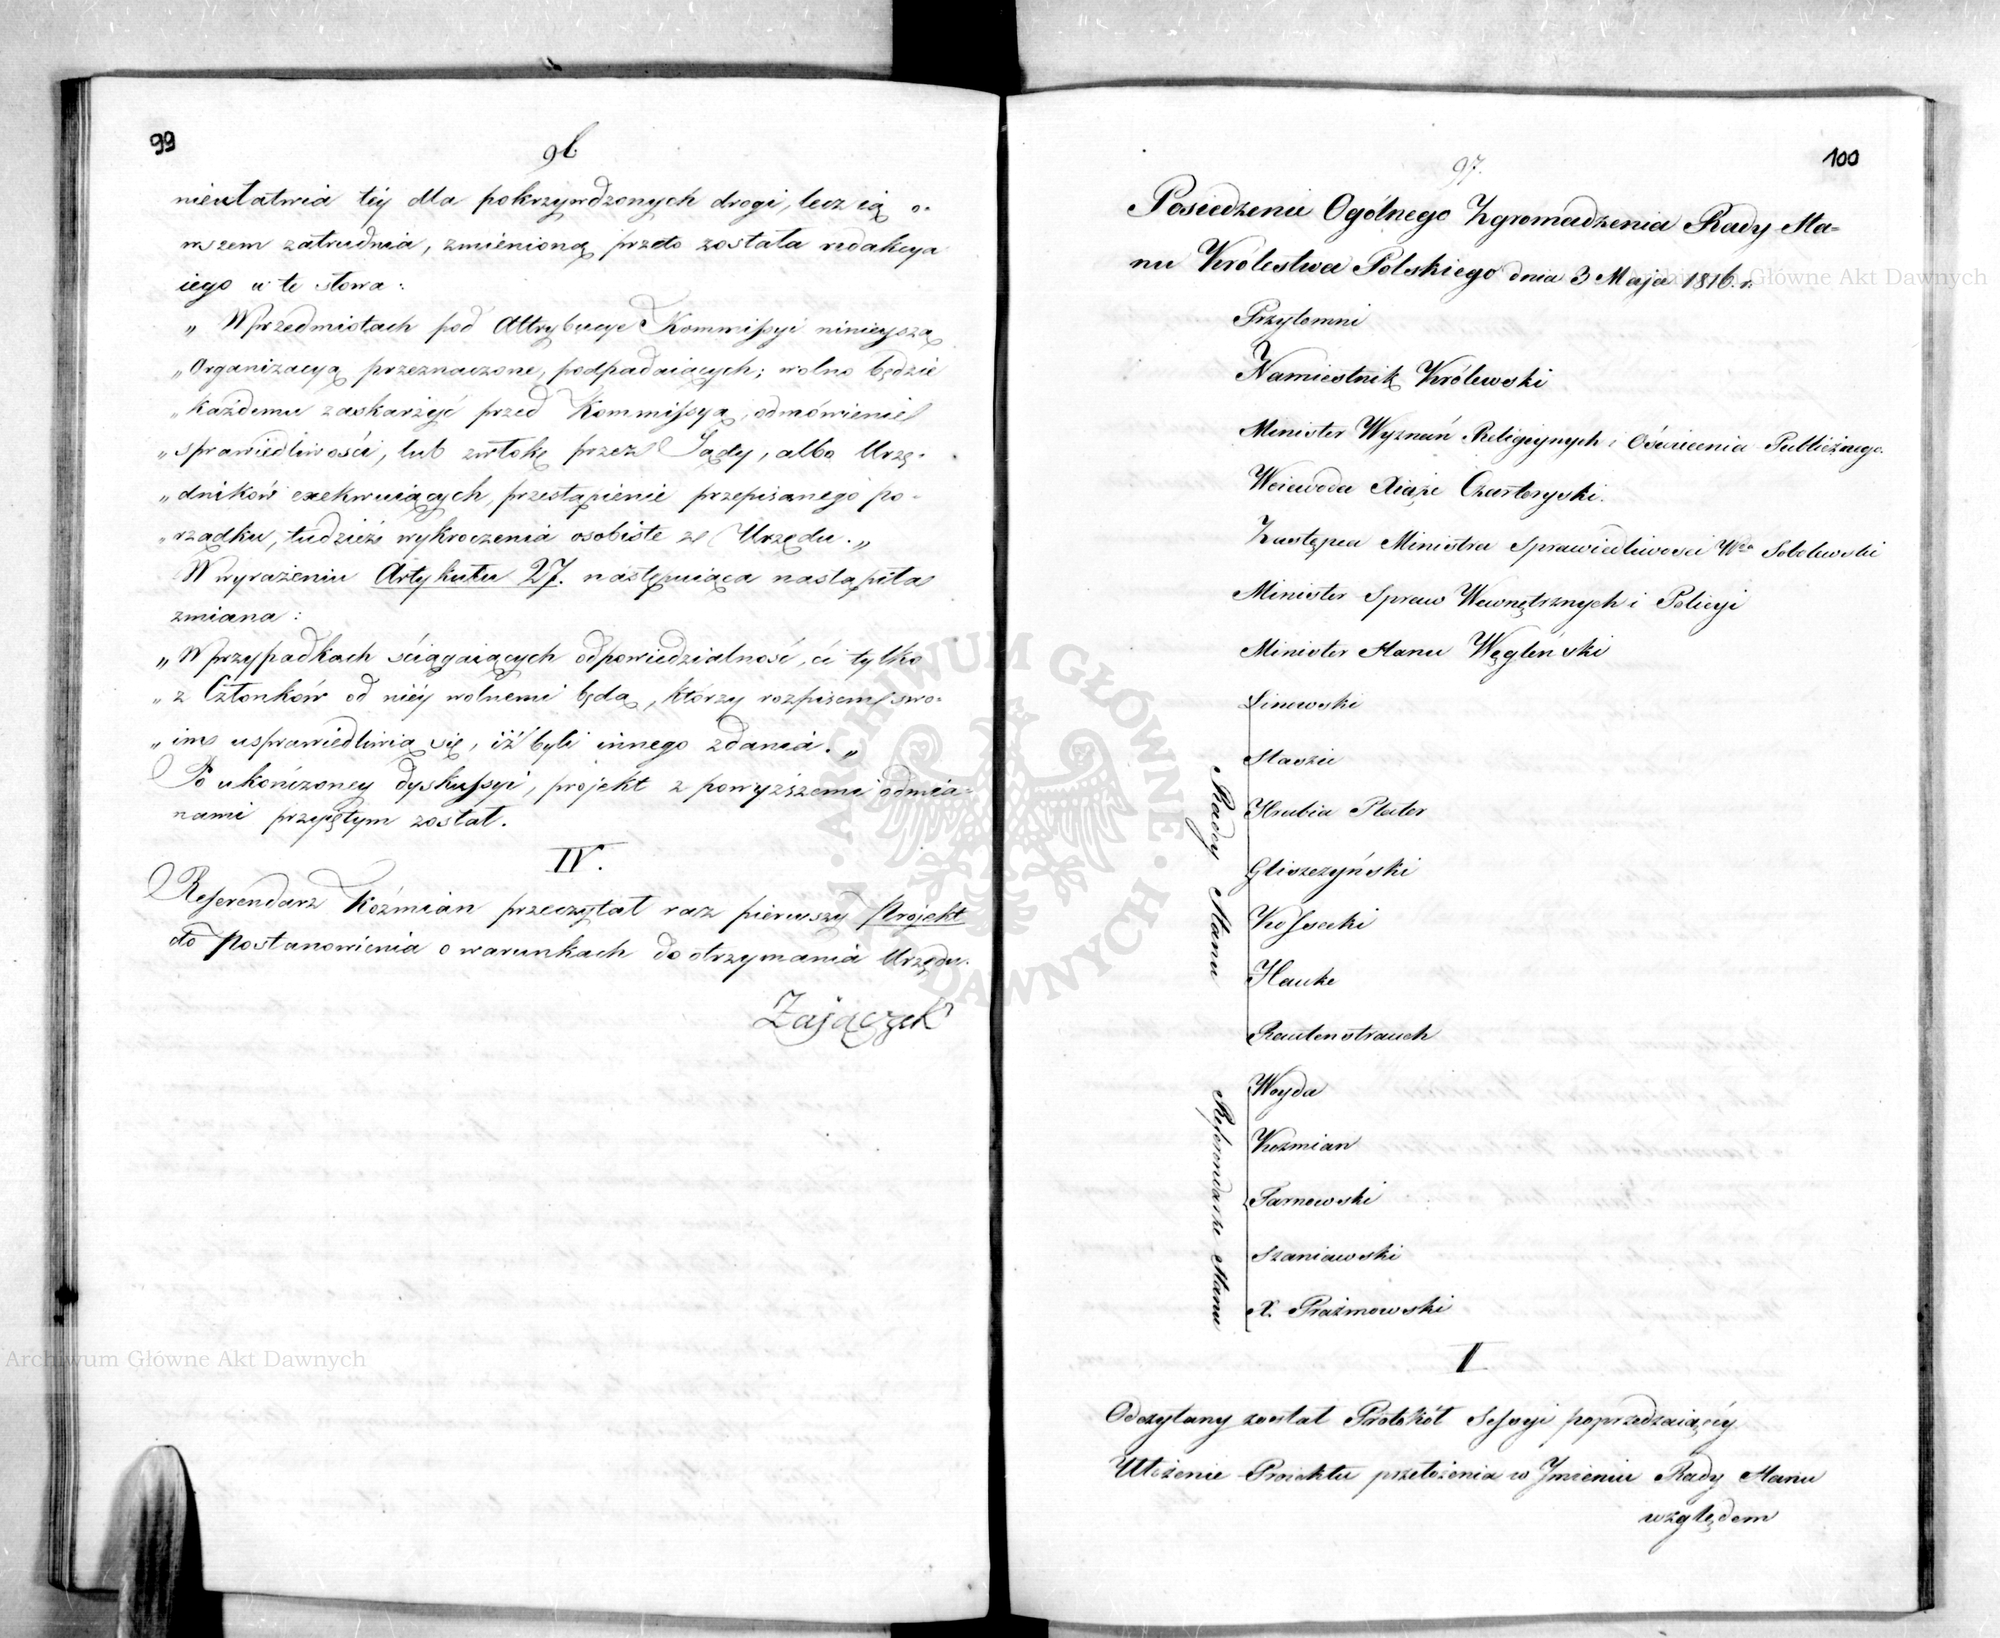 99
96.
nieułatwia téy dla pokrzywdzonych drogi, lecz ią o-
wszem zatrudnia, zmienioną przeto została redakcya
iego w te słowa:
„ W przedmiotach pod Attrybucye Kommissyi ninieyszą
„ Organizacyą przeznaczone, podpadaiących; wolno będzie
„ każdemu zaskarżyć przed Kommissyą, odmówienie
„ sprawiedliwości, lub zwłokę przez Sądy, albo Urzę-
„ dników exekwuiących, przestąpienie przepisanego po-
„ rządku, tudzież wykroczenia osobiste z Urzędu. „
W wyrażeniu Artykułu 27. następuiąca nastąpiła
zmiana:
„ W przypadkach ściągaiących odpowiedzialność, ci tylko
„ z Członków od niéy wolnemi będą, którzy rozpisem swo-
„ im usprawiedliwią się, iż byli innego zdania. „
Po ukończoney dyskussyi, projekt z powyższemi odmia-
nami przyiętym został.
IV.
Referendarz Koźmian przeczytał raz pierwszy Projekt
do Postanowienia o warunkach do otrzymania Urzędu.
Zajączek
100
97.
Posiedzenie Ogólnego Zgromadzenia Rady Sta-
nu Królestwa Polskiego dnia 3 Maja 1816. r.
Przytomni
Namiestnik Królewski
Minister Wyznań Religiynych i Oświecenia Publicznego
Woiewoda Xiąże Czartoryski.
Zastępca Ministra Sprawiedliwości Wda Sobolewski
Minister Spraw Wewnętrznych i Policyi
Minister Stanu Węgleński
Radcy Stanu
Linowski
Staszic
Hrabia Plater
Gliszczyński
Kossecki
Hauke
Rautenstrauch
Referendarze Stanu
Woyda
Koźmian
Tarnowski
Szaniawski
X. Prażmowski
I
Odczytany został Protokół Sessyi poprzedzaiącéy
Ułożenie Proiektu przełożenia w Imieniu Rady Stanu
względem
Archiwum Główne Akt Dawnych
Archiwum Główne Akt Dawnych
ARCHIWUM GŁÓWNE AKT DAWNYCH